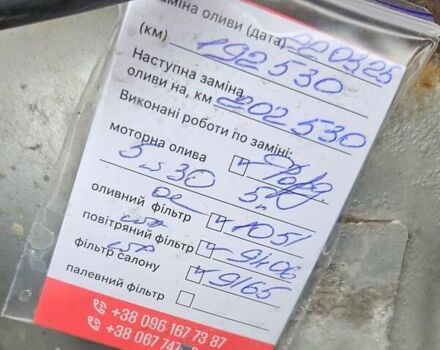 заміна оливи (дата) 22.03.25
(км) 192 530
Наступна заміна
оливи на, км 202 530
Виконані роботи по заміні:
моторна олива
5w30 5л
оливний фільтр 1051
повітряний фільтр 9406
фільтр салону 9165
палевний фільтр
+38 096 167 73 87
+38 067 747